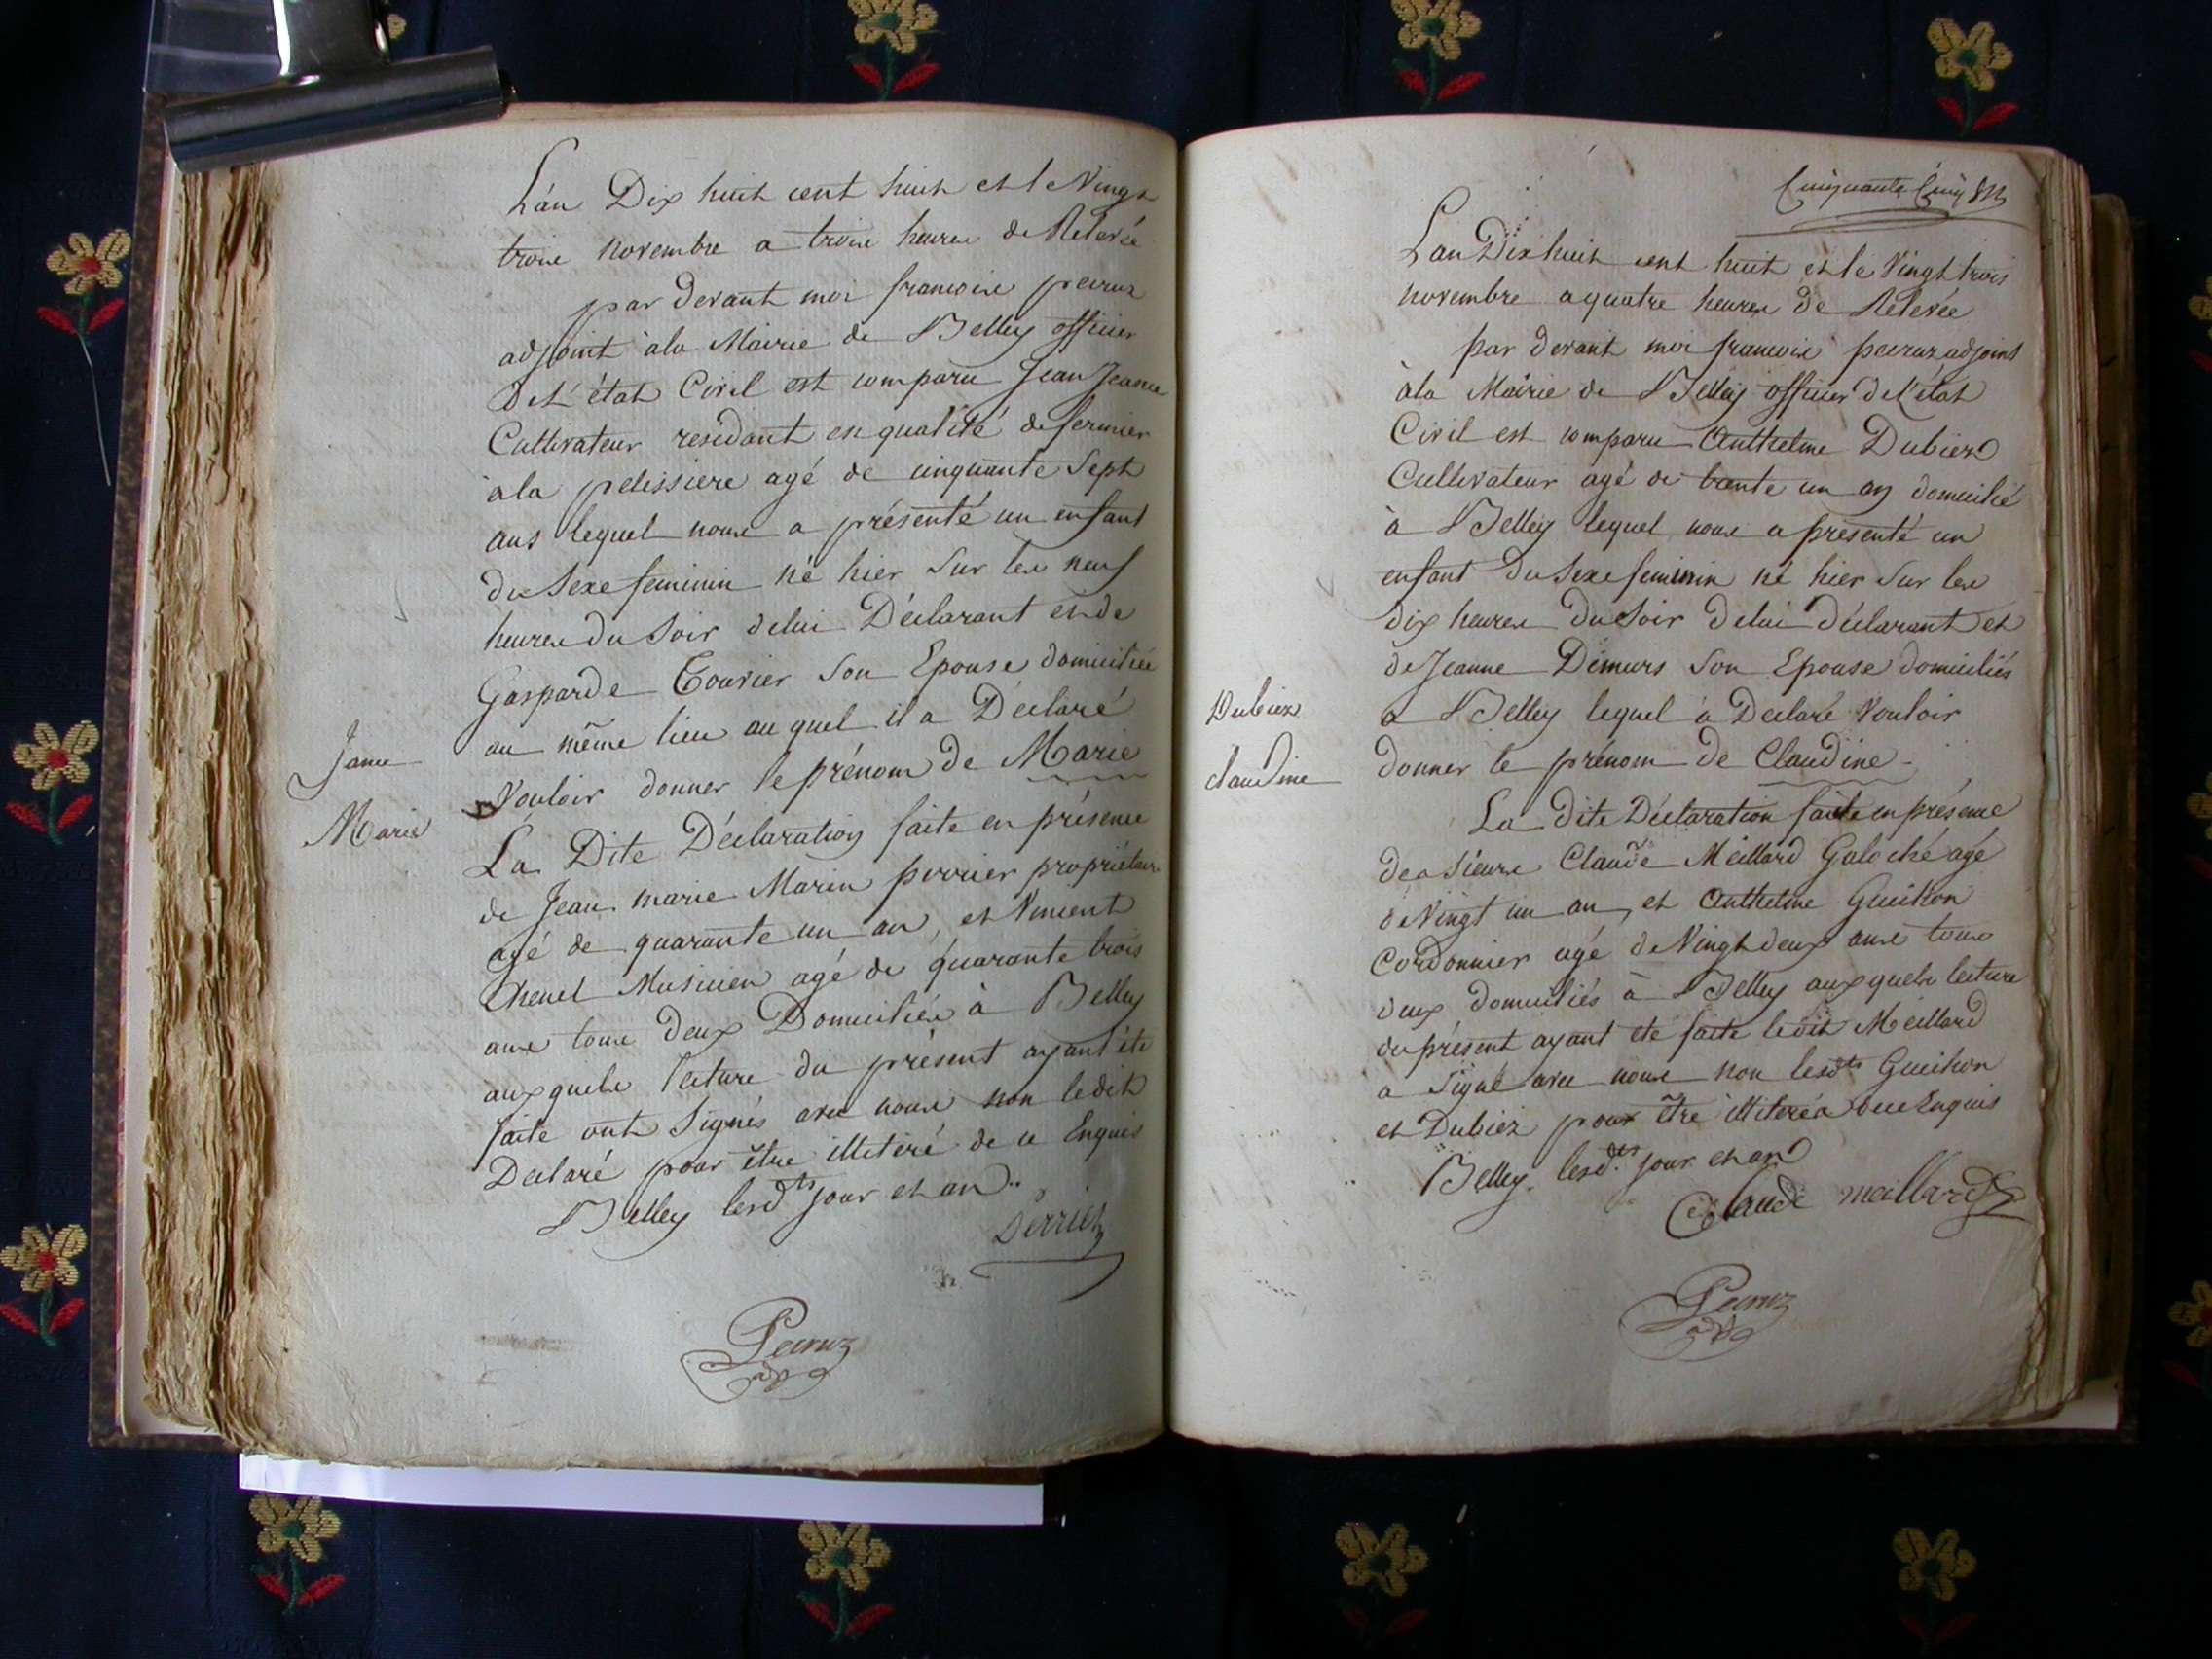 L'an Dix huit cent huit et le Vingt
trois novembre a trois heures de Relevée
par devant moi francois peiruz
adjoint à la Mairie de Belley officier
de L'état Civil est comparu Jean Jeanne
Cultivateur residant en qualité de fermier
à la pelissiere agé de cinquante Sept
ans lequel nous a présenté un enfant
du Sexe feminin né hier Sur les neuf
heures du Soir de lui Déclarant et de
Gasparde son Epouse domiciliée
au même lieu au quel il a Déclaré
Vouloir donner le prénom de Marie
Janne
Marie
La Dite Déclaration faite en présence
de Jean marie Marin perrier propriétaire
agé de quarante un an, et Vincent
Chenel Musicien agé de quarante trois
ans tous deux Domiciliés à Belley
auxquels lecture du présent ayant été
faite ont Signés avec nous non ledit
Declaré pour être illitéré de ce Enquis
Belley lesdts jour et an
Perrier
Peiruz
adj
Cinquante Cinq
L'an Dix huit cent huit et le Vingt trois
novembre a quatre heures de Relevée
par devant moi francois peiruz adjoint
à la Mairie de Belley officier de l'état
Civil est comparu Anthelme Dubiez
Cultivateur agé de trente un an domicilié
à Belley lequel nous a présenté un
enfant du Sexe feminin né hier Sur les
dix heures du Soir de lui déclarant et
de Jeanne Dimurs Son Epouse domiciliés
a Belley lequel a Declaré Vouloir
donner le prénom de Claudine
Dubiez
claudine
La dite Déclaration faite en présence
des Sieurs Claude Meillard Galoché agé
de Vingt un an, et Anthelme Guitton
Cordonnier agé de Vingt deux ans tous
deux domiciliés à Belley auxquels lecture
du présent ayant été faite ledit Meillard
a Signé avec nous non lesdts Guitton
et Dubiez pour être illiterés de ce Enquis
Belley lesdts jour et an
Claude meillard
Peiruz
adj